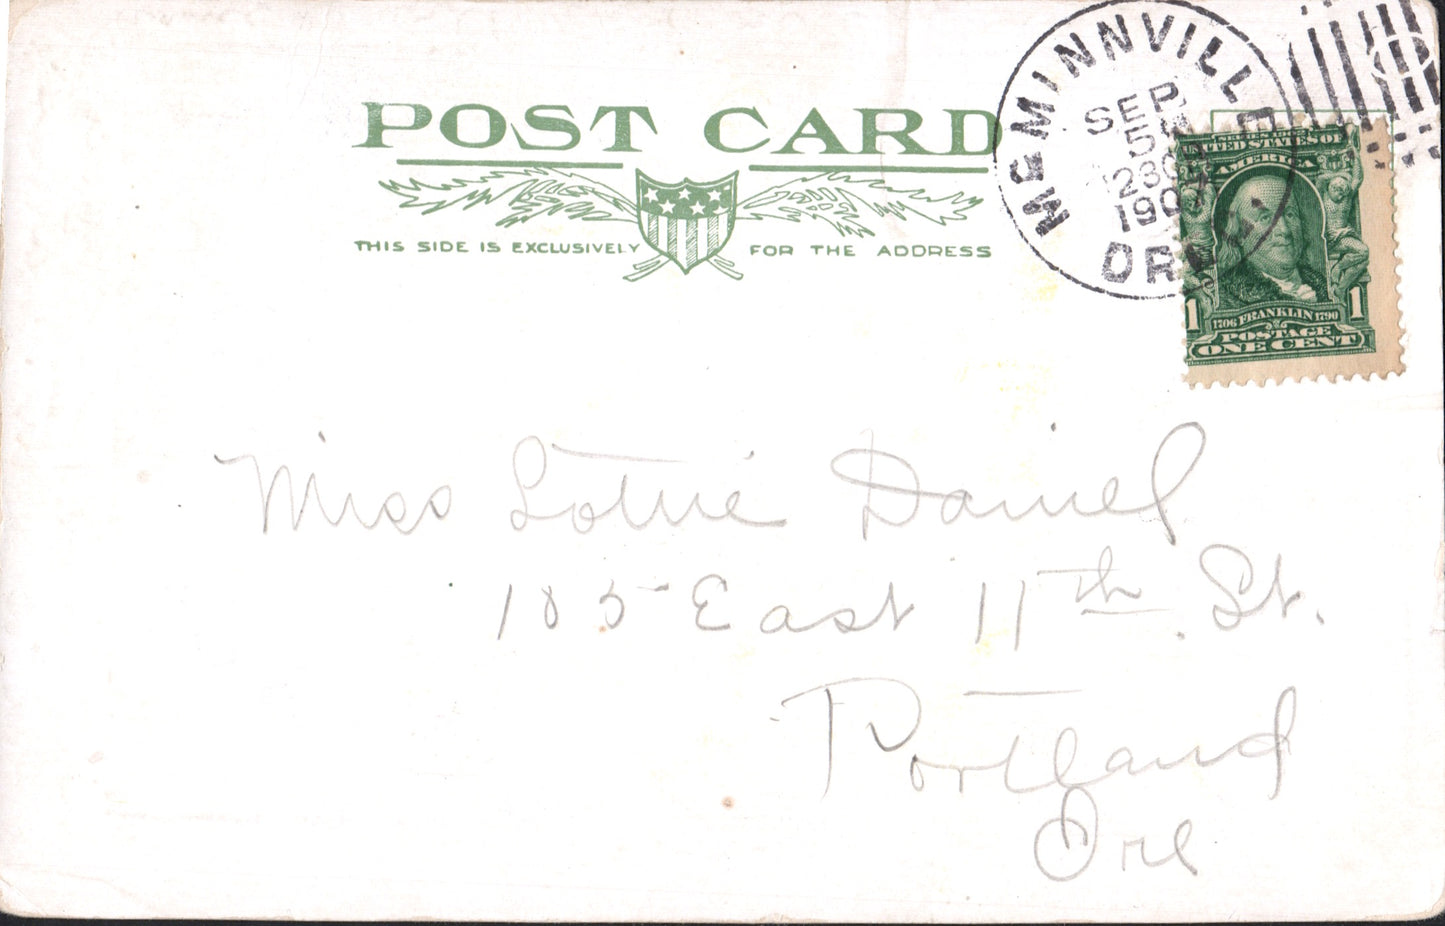 POST CARD
THIS SIDE IS EXCLUSIVELY FOR THE ADDRESS
McMINNVILLE
SEP
5
1907
OREG.
UNITED STATES OF
AMERICA
1 1
1706 FRANKLIN 1790
POSTAGE
ONE CENT
Miss Lottie Daniel
185 East 11th St.
Portland
Ore